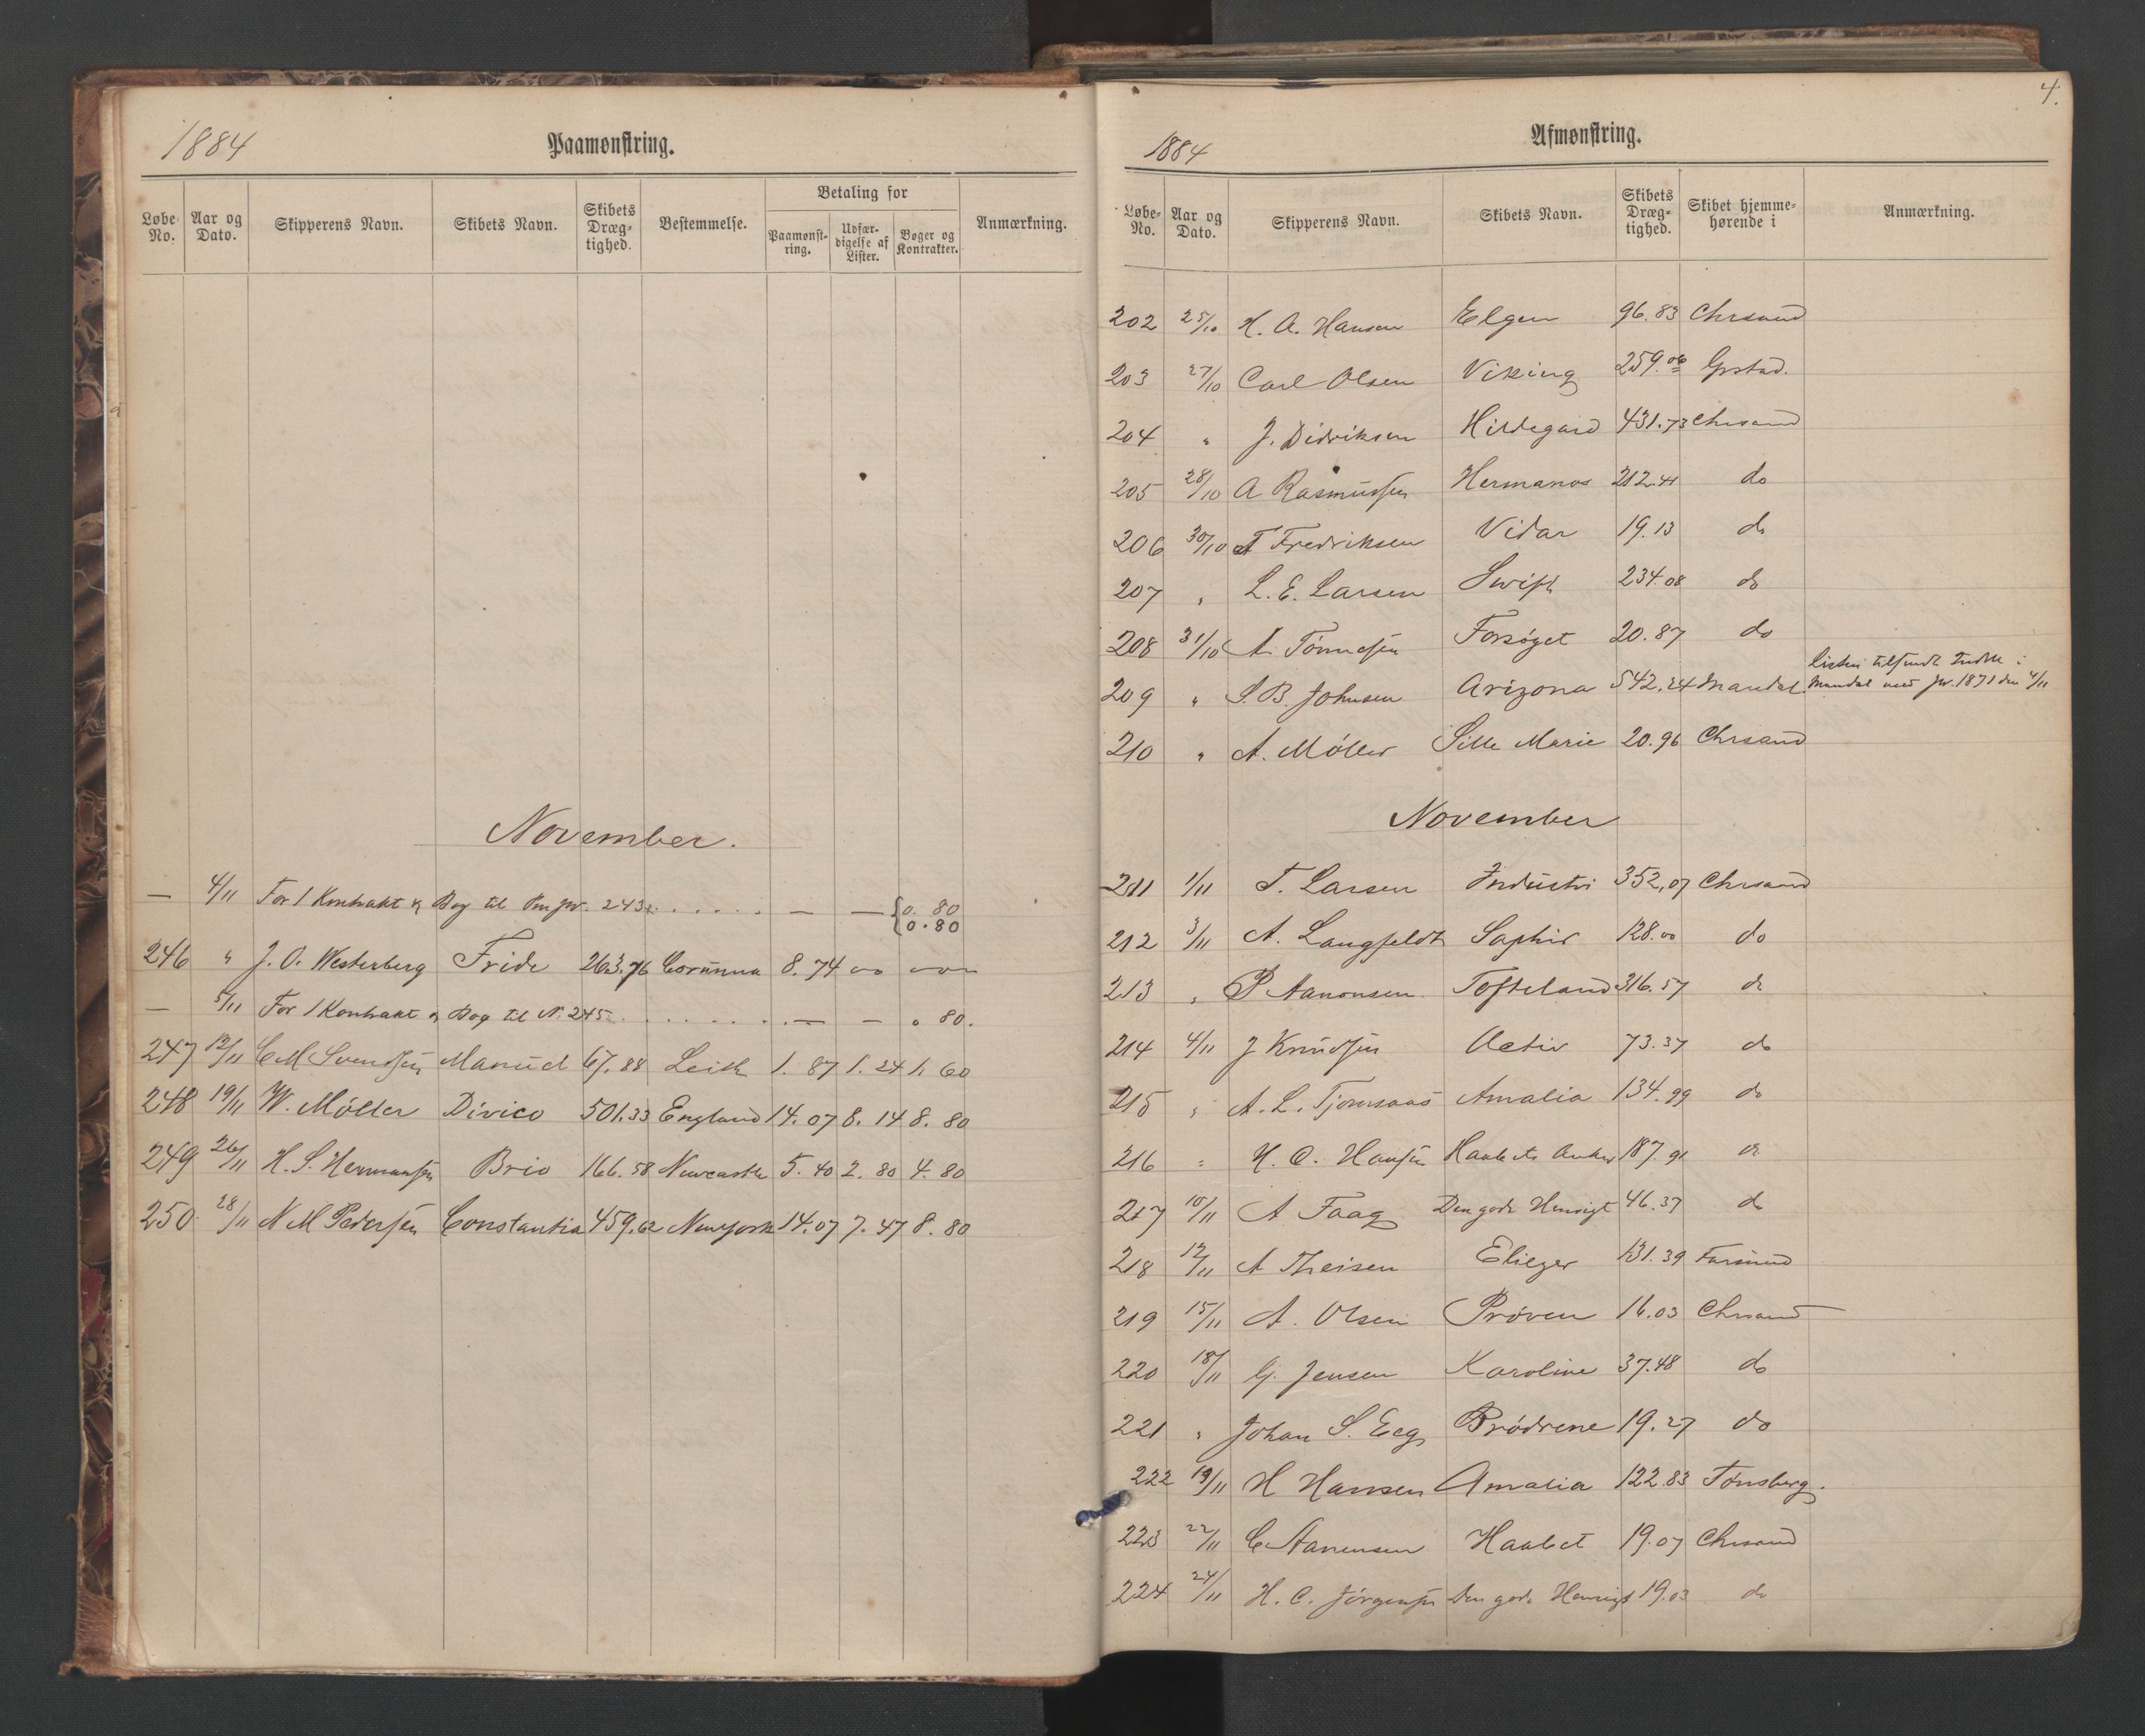 1884
Paamønstring.
Løbe No.
Aar og Dato.
Skipperens Navn.
Skibets Navn.
Skibets Dræg-tighed.
Bestemmelse.
Betaling for
Paamønst-ring.
Udfær-digelse af Lister.
Bøger og Kontrakter.
Anmærkning.
November.
— 4/11 For 1 Kontrakt & Bog til 243. — — 0.80
0.80
246 " J. O. Westerberg Fride 263.76 Corunna 8.74
— 5/11 For 1 Kontrakt & Bog til N. 245 — — 0 80.
247 12/11 C M Svendsen Manuel 67.88 Leith 1.87 1.24 1.60
248 19/11 W. Möller Divico 501.33 England 14.07 8.14 8.80
249 26/11 H. S. Hermansen Brio 166.58 Newcastle 5.40 2.80 4.80
250 28/11 N M Pedersen Constantia 459.62 Newyork 14.07 7.47 8.80
4.
1884
Afmønstring.
Løbe-No.
Aar og Dato.
Skipperens Navn.
Skibets Navn.
Skibets Dræg-tighed.
Skibet hjemme-hørende i
Anmærkning.
202 25/10 H. A. Hansen Elgen 96.83 Chrsand
203 27/10 Carl Olsen Viking 259.06 Grstad.
204 " J. Didriksen Hildegard 431.73 Chrsand
205 28/10 A Rasmussen Hermanos 212.41 do
206 30/10 T Fredriksen Vidar 19.13 do
207 " L. E. Larsen Swift 234.08 do
208 31/10 A. Tönnesen Forsöget 20.87 do
Listen tilsendt Indr. i
209 " S. B. Johnsen Arizona 542.24 Mandal Mandal med Jr. 1871 den 4/11
210 " A. Möller Sille Marie 20.96 Chrsand
November
211 1/11 T. Larsen Industri 352,07 Chrsand
212 3/11 A. Langfeldt Saphir 128.00 do
213 " P Aanonsen Tofteland 316.57 do
214 4/11 J Knudsen Activ 73.37 do
215 " A. L. Tjomsaas Amalia 134.99 do
216 " H. C. Hansen Haabets Anker 187.91 do
217 10/11 A Faag Den gode Hensigt 46.37 do
218 12/11 A Theisen Eliezer 131.39 Farsund
219 15/11 A. Olsen Pröven 16.03 Chrsand
220 18/11 G. Jensen Karoline 37.48 do
221 " Johan S. Eeg Brödrene 19.27 do
222 19/11 H Hansen Amalia 122.83 Tönsberg.
223 22/11 C Aanensen Haabet 19.07 Chrsand
224 24/11 H. C. Jörgensen Den gode Hensigt 19.03 do